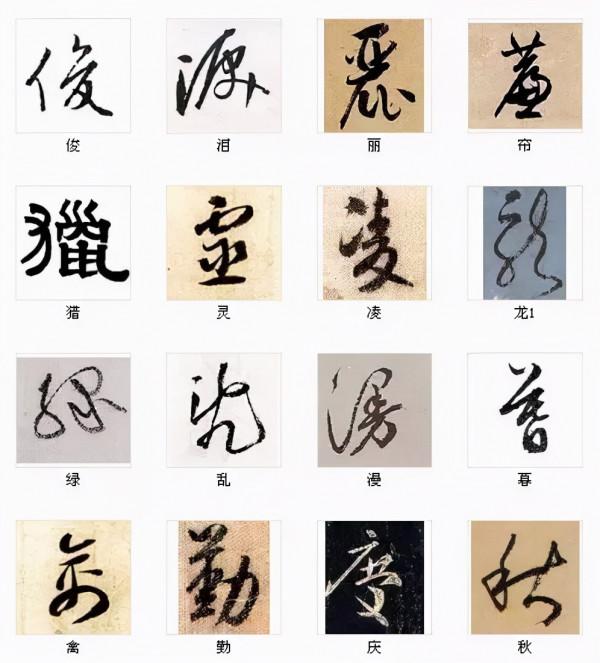 俊 泪 丽 帘
猎 灵 凌 龙1
绿 乱 漫 暮
禽 勤 庆 秋